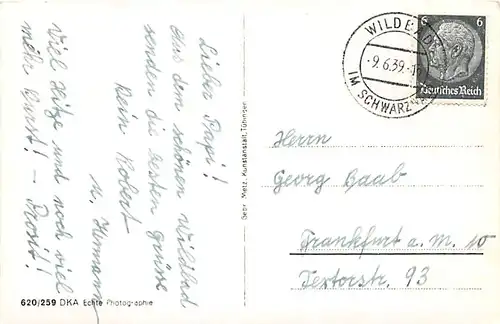 Lieber Papi!
Aus dem schönen Wildbad
senden die besten Grüsse
Dein Robert
u. Hermann
Viel Hitze und noch viel
mehr Durst! – Prosit!
620/259 DKA Echte Photographie
Gebr. Metz, Kunstanstalt, Tübingen
WILDBAD
-9.6.39.-
IM SCHWARZWALD
6 6
Deutsches Reich
Herrn
Georg Baab
Frankfurt a. M. 10
Textorstr. 93